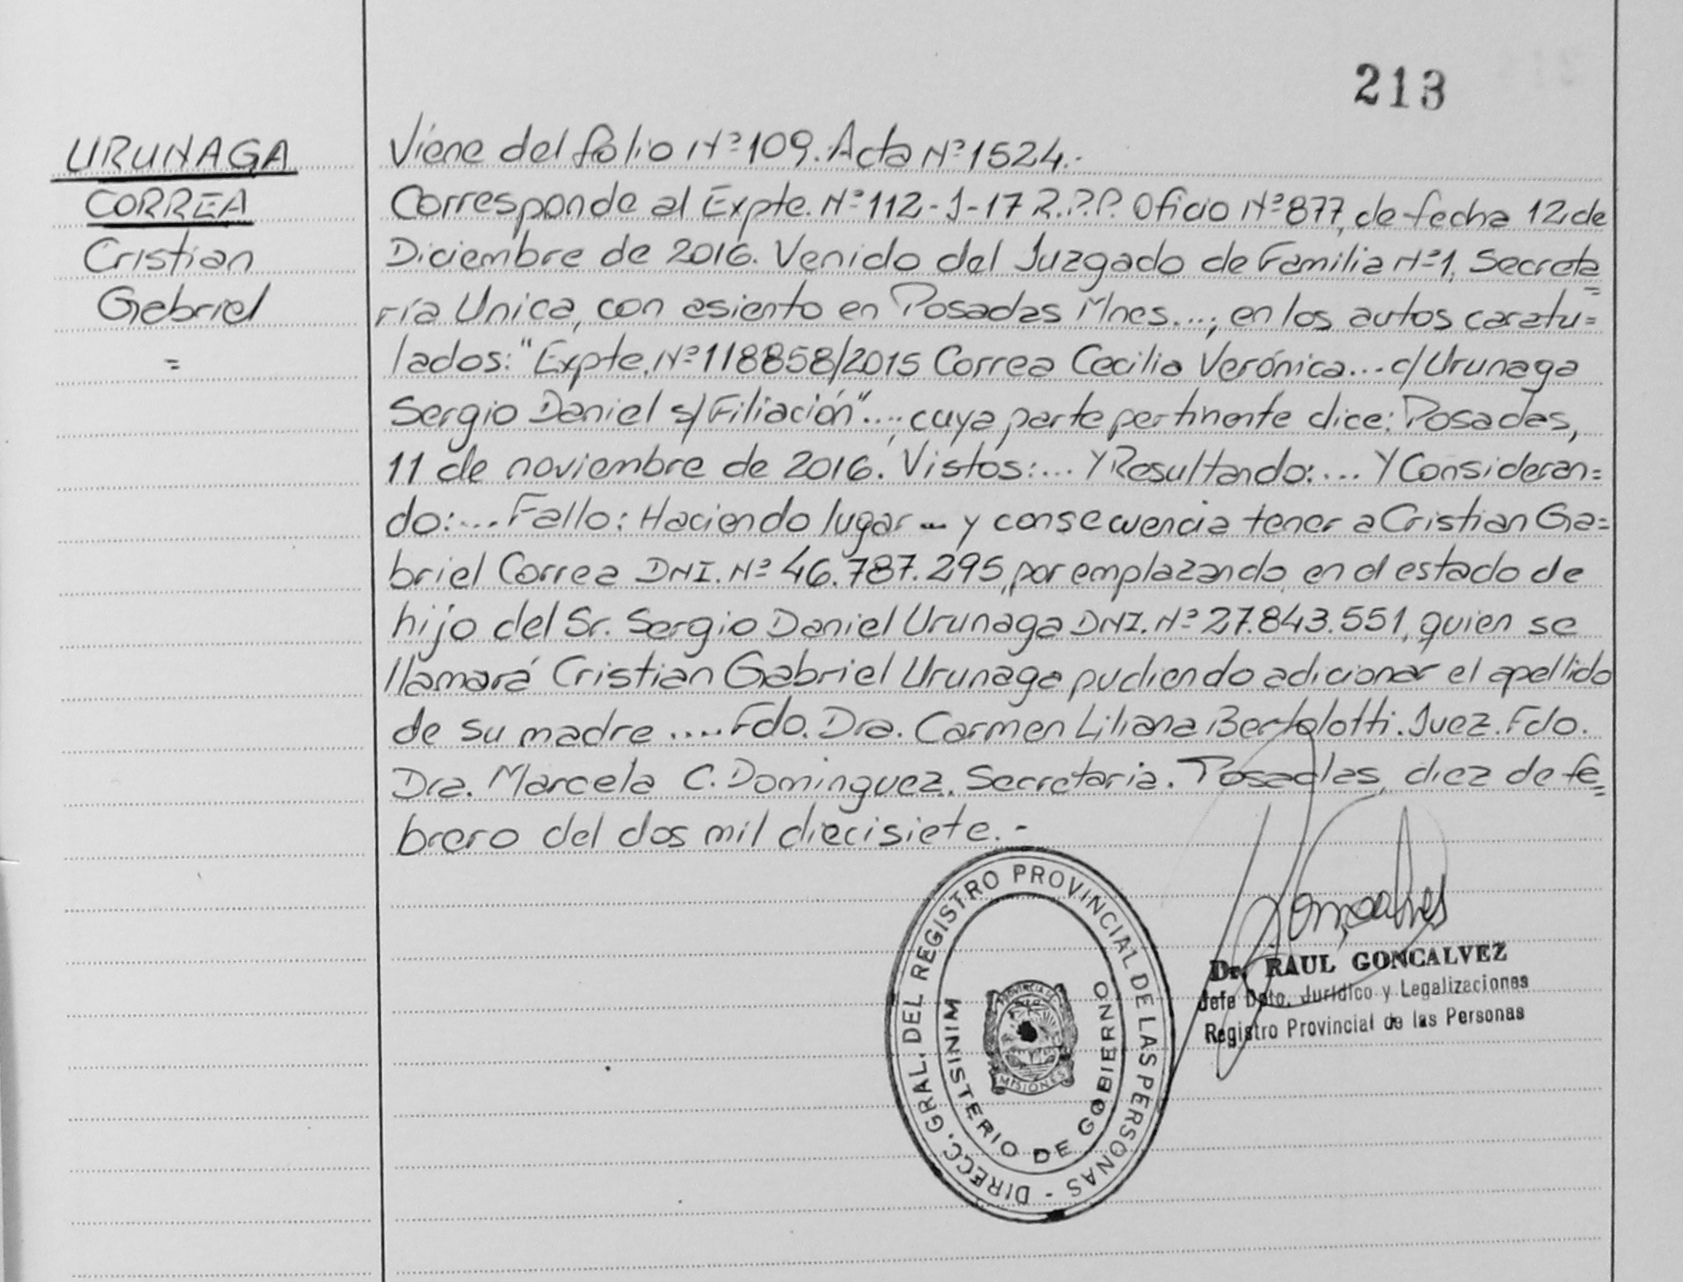 213
URUNAGA
CORREA
Cristian
Gabriel
=
Viene del folio Nº109. Acta Nº1524.-
Corresponde al Expte. Nº112-J-17 R.P.P. Oficio Nº877, de fecha 12 de
Diciembre de 2016. Venido del Juzgado de Familia Nº1, Secreta=
ría Unica, con asiento en Posadas Mnes...; en los autos caratu=
lados: "Expte. Nº118858/2015 Correa Cecilia Verónica... c/Urunaga
Sergio Daniel s/Filiación"...; cuya parte pertinente dice: Posadas,
11 de noviembre de 2016. Vistos:... Y Resultando:... Y Consideran=
do:.... Fallo: Haciendo lugar ... y consecuencia tener a Cristian Ga=
briel Correa DNI. Nº 46.787.295, por emplazando en el estado de
hijo del Sr. Sergio Daniel Urunaga DNI. Nº 27.843.551, quien se
llamará Cristian Gabriel Urunaga pudiendo adicionar el apellido
de su madre .... Fdo. Dra. Carmen Liliana Bertolotti. Juez. Fdo.
Dra. Marcela C. Dominguez. Secretaria. Posadas, diez de fe=
brero del dos mil diecisiete.-
DIRECC. GRAL. DEL REGISTRO PROVINCIAL DE LAS PERSONAS -
MINISTERIO DE GOBIERNO
PROVINCIA DE
MISIONES
Goncalves
Dr. RAUL GONCALVEZ
Jefe Dpto. Jurídico y Legalizaciones
Registro Provincial de las Personas